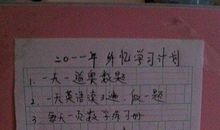 二〇一一年 外忆学习计划
1. 一天一道奥数题
2. 一天英语读3遍,做一题
3. 每天一页数学练习册